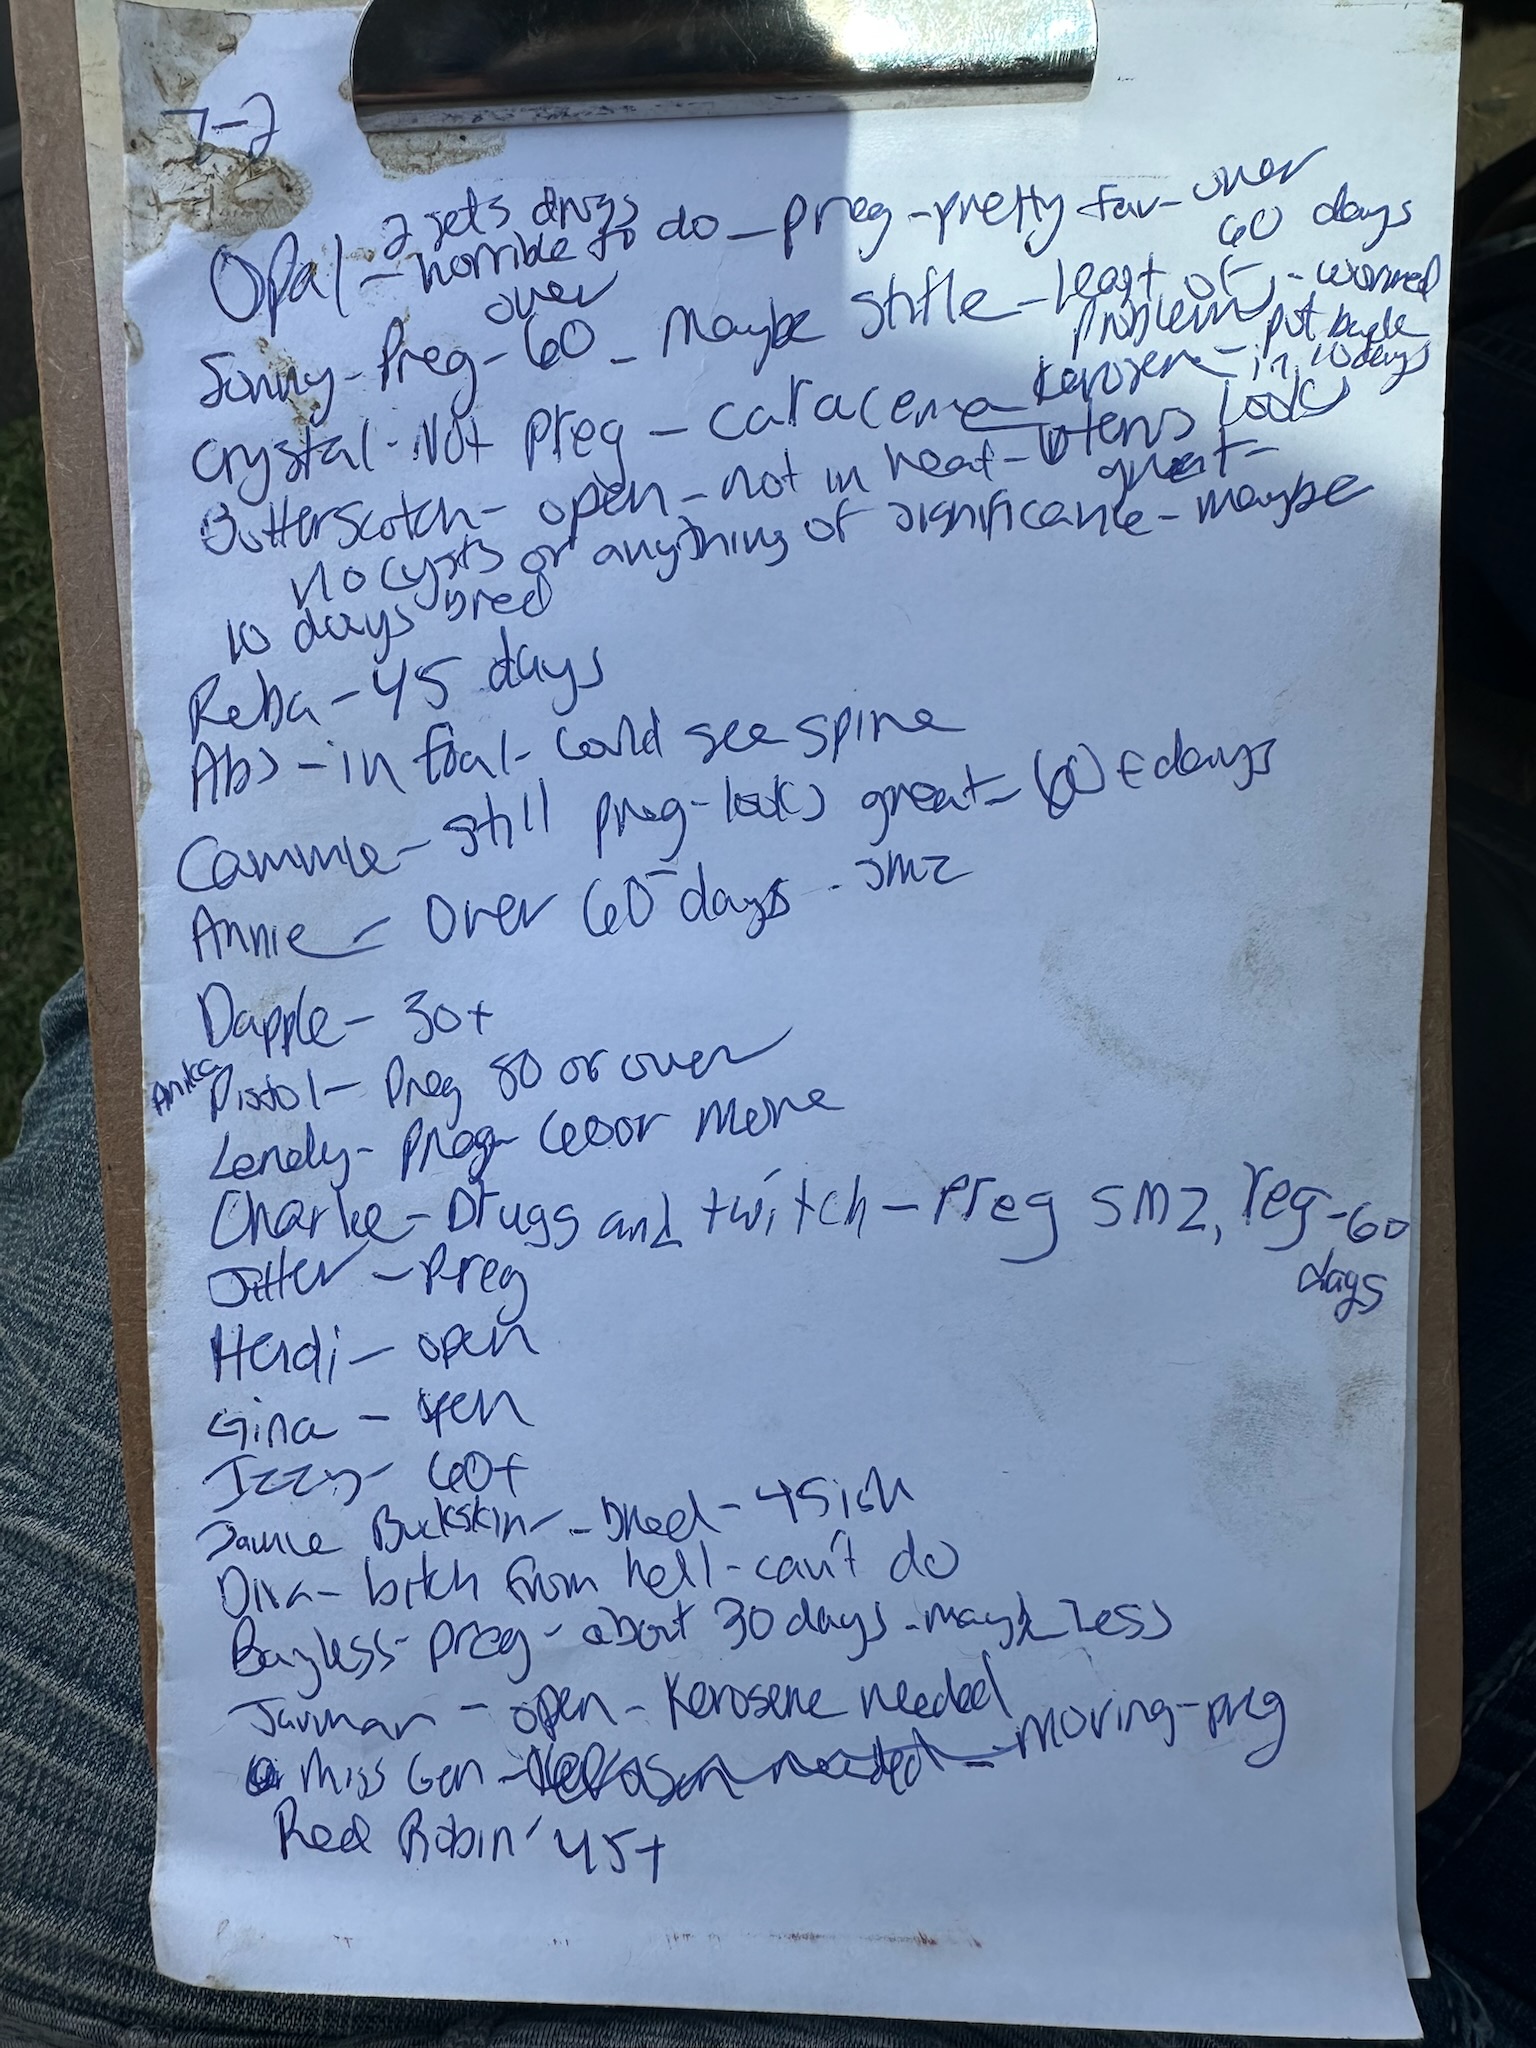 7-2
Opal - 2 sets drugs horrible to do - preg - pretty far - over 60 days
Sonny - Preg - over 60 - Maybe stifle - Least of problems - worried
Crystal - Not preg - Kerosene - put back in 10 days
Butterscotch - open - not in heat - looks great -
no cysts or anything of significance - maybe
10 days bred
Reba - 45 days
Abs - in foal - could see spine
Cammie - still preg - looks great - 60+ days
Annie - Over 60 days - SMZ
Dapple - 30+
Pistol - Preg 80 or over
Lendy - preg - 60 or more
Charlie - Drugs and twitch - Preg SMZ, reg - 60 days
Jitter - Preg
Heidi - open
Gina - open
Izzy - 60+
Buckskin - bred - 45ish
Diva - bitch from hell - can't do
Bayless - preg - about 30 days - maybe less
Jarman - open - Kerosene needed
Miss Gen - moving - preg
Red Robin - 45+